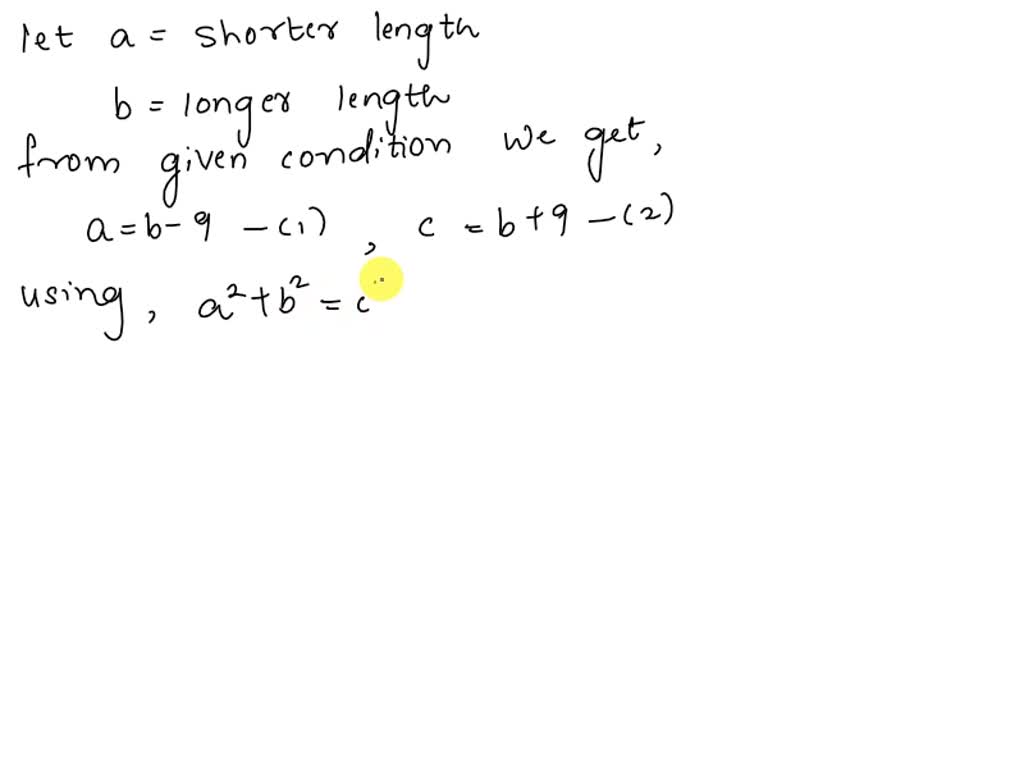 let a = shorter length
b = longer length
from given condition we get,
a = b - 9 - (1) , c = b + 9 - (2)
using, a² + b² = c